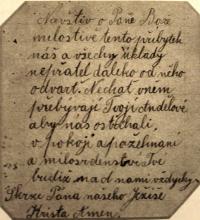 Navštiv o Pane Bože
milostivě tento přibytek
náš a všechny úklady
nepřátel daleko od něho
odvrať. Nechať v něm
přebývají Tvoji Andělové
aby nás ostřihali
v pokoji a požehnani
a milosrdenství Tvé
budiž nad nami vždycky
Skrze Pána našeho Ježíše
Krista Amen.